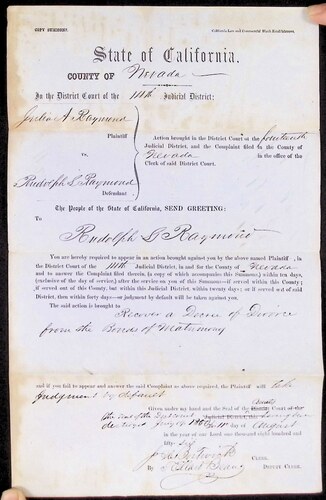 COPY SUMMONS.
State of California.
COUNTY OF Nevada
In the District Court of the 14th Judicial District:
A Raymond
Plaintiff
vs.
Rudolph L Raymond
Defendant
Action brought in the District Court of the fourteenth
Judicial District, and the Complaint filed in the County of
Nevada in the office of the
Clerk of said District Court.
The People of the State of California, SEND GREETING:
To
Rudolph L Raymond
You are hereby required to appear in an action brought against you by the above named Plaintiff , in
the District Court of the 14th Judicial District, in and for the County of Nevada
and to answer the Complaint filed therein, (a copy of which accompanies this Summons,) within ten days,
(exclusive of the day of service) after the service on you of this Summons—if served within this County ;
if served out of this County, but within this Judicial District, within twenty days; or if served out of said
District, then within forty days—or judgment by default will be taken against you.
The said action is brought to
Recover a Decree of Divorce
from the Bonds of Matrimony
and if you fail to appear and answer the said Complaint as above required, the Plaintiff will take
judgment by default
Given under my hand and the Seal of the
day of August
in the year of our Lord one thousand eight hundred and sixty
CLERK.
By
DEPUTY CLERK.